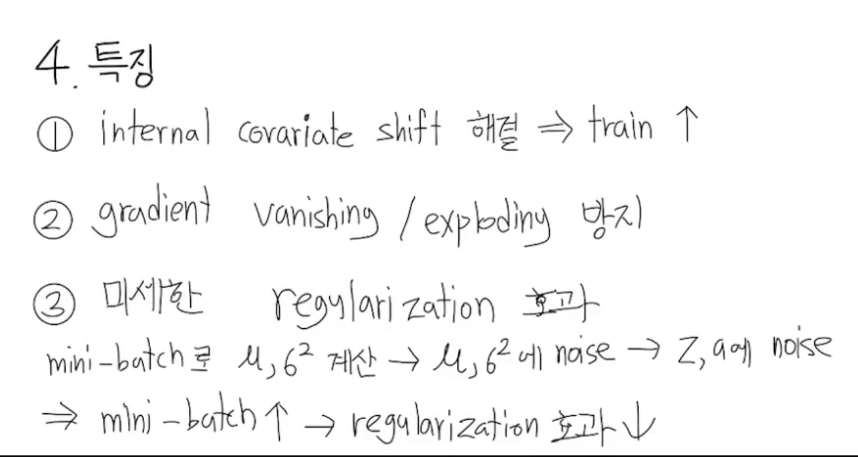 4. 특징
① internal covariate shift 해결 ⇒ train ↑
② gradient vanishing / exploding 방지
③ 미세한 regularization 효과
mini-batch로 μ, σ² 계산 → μ, σ²에 noise → Z, a에 noise
⇒ mini-batch ↑ → regularization 효과 ↓